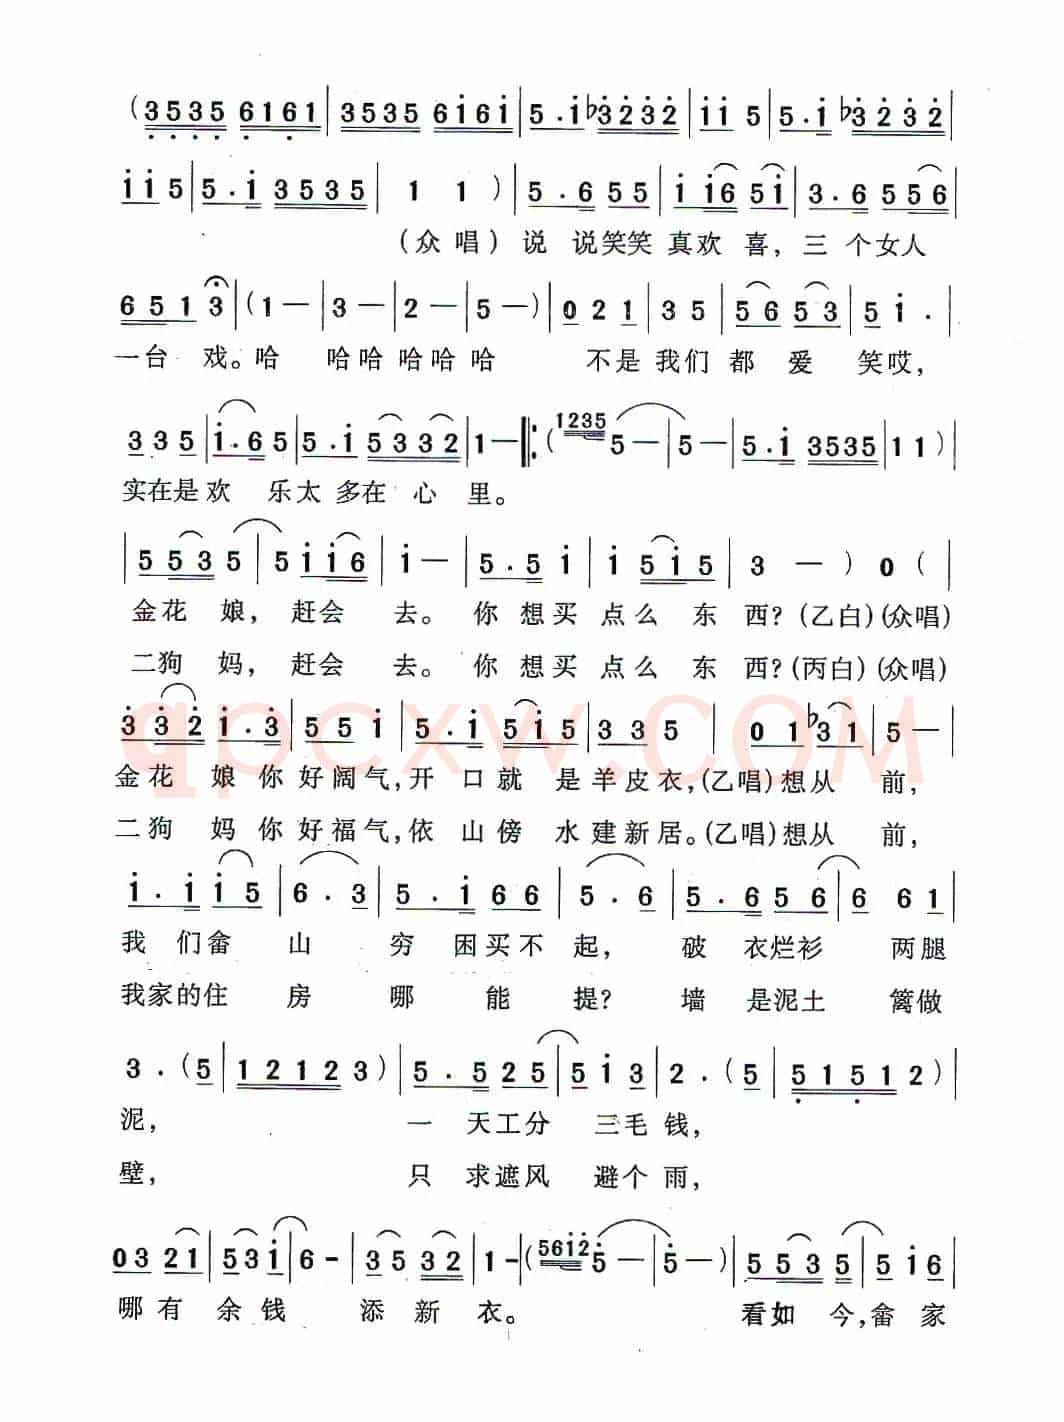 (3535 6161 | 3535 6161 | 5 . i ♭3232 | ii 5 | 5 . i ♭3232 |
ii5 | 5 . i 3535 | 1 1 ) | 5 . 6 55 | i i6 5i | 3 . 6 556 |
(众唱) 说 说笑笑 真欢 喜, 三 个女人
6 5 1 3 | (1 — | 3 — | 2 — | 5 — ) | 0 2 1 | 3 5 | 56 53 | 5 i . |
一台 戏。哈 哈哈 哈哈 哈 不是 我们 都 爱 笑哎,
3 3 5 | i . 6 5 | 5 . i 5332 | 1 — ‖: ( 1235 5 — | 5 — | 5 . i 3535 | 1 1 ) |
实在是欢 乐太 多在 心 里。
| 5 53 5 | 5 i i6 | i — | 5 . 5 i | i 5i5 | 3 — ) 0 ( |
金花 娘, 赶会 去。 你 想买 点么 东 西? (乙白) (众唱)
二狗 妈, 赶会 去。 你 想买 点么 东 西? (丙白) (众唱)
3 32 i . 3 | 5 5 i | 5 . i 5i5 | 3 3 5 | 0 1 ♭31 | 5 — |
qpcxw.COM
金花 娘 你 好阔气, 开 口就 是羊皮衣, (乙唱) 想从 前,
二狗 妈 你 好福气, 依 山傍 水建新居。(乙唱) 想从 前,
i . i i5 | 6 . 3 | 5 . i 66 | 5 . 6 | 5 . 6 56 | 6 6 1 |
我 们畲 山 穷 困买不 起, 破 衣烂衫 两腿
我家的住 房 哪 能 提? 墙 是泥土 篱做
3 . ( 5 | 1 2 1 2 3 ) | 5 . 5 2 5 | 5 i 3 | 2 . ( 5 | 5 1 5 1 2 ) |
泥, 一 天工分 三毛 钱,
壁, 只 求遮风 避个 雨,
03 21 | 53i | 6 - | 35 32 | 1 - | ( 56i2 5 — | 5 — ) | 5 53 5 | 5 i 6 |
哪有 余钱 添 新 衣。 看如 今, 畲 家